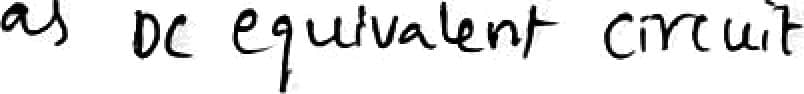 as DC equivalent circuit